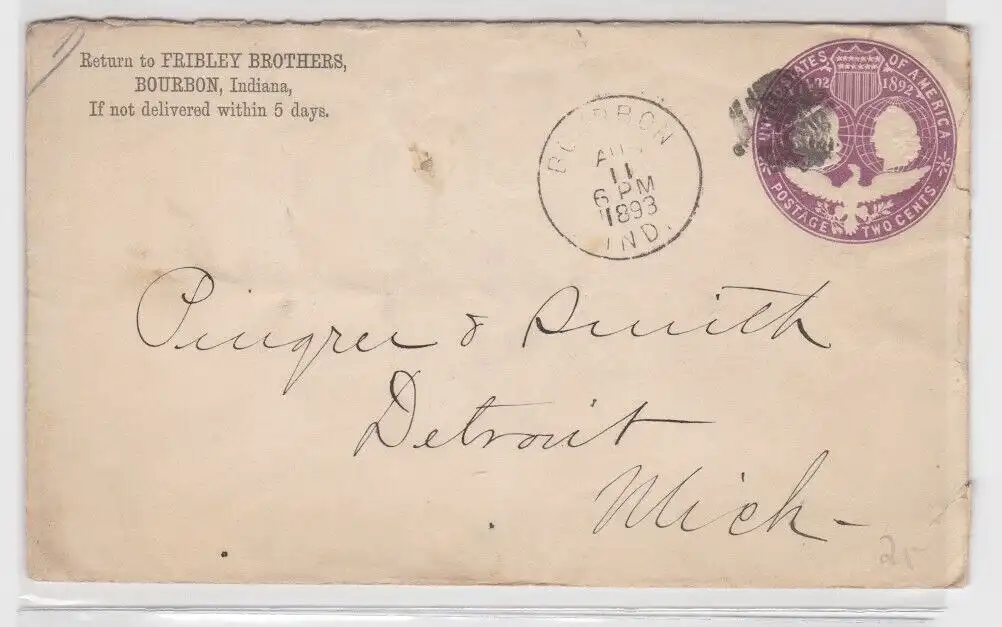 Return to FRIBLEY BROTHERS,
BOURBON, Indiana,
If not delivered within 5 days.
UNITED STATES OF AMERICA
1892
POSTAGE TWO CENTS
BOURBON
11
6 PM
1893
IND.
Pingree & Smith
Detroit
Mich-